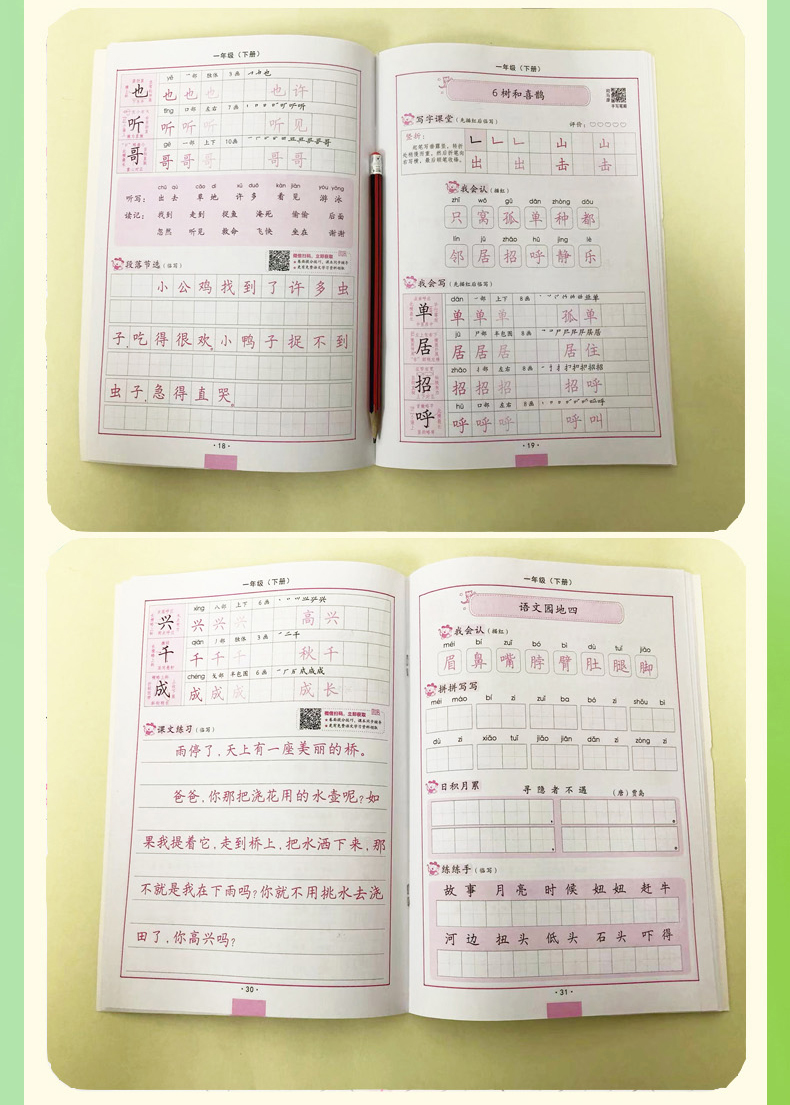 一年级（下册）
yě 一部 独体 3画
也 也 也 也 也许
tīng 口部 左右 7画
听 听 听 听 听见
gē 一部 上下 10画
哥 哥 哥 哥 哥哥
chū qù cǎo dì xǔ duō kàn jiàn yóu yǒng
听写：出去 草地 许多 看见 游泳
读记：找到 走到 捉鱼 淹死 偷偷 后面
忽然 听见 救命 飞快 坐在 谢谢
段落节选（临写）
小公鸡找到了许多虫
子，吃得很欢。小鸭子捉不到
虫子，急得直哭。
·18·
一年级（下册）
6 树和喜鹊
写字课堂（先描红后临写） 评价：
竖折：
山 山
出 出 击 击
我会认（描红）
zhī wō gū dān zhòng dōu
只 窝 孤 单 种 都
lín jū zhāo hū jìng lè
邻 居 招 呼 静 乐
我会写（先描红后临写）
dān 上下 8画
单 单 单 单 孤单
jū 尸部 半包围 8画
居 居 居 居 居住
zhāo 扌部 左右 8画
招 招 招 招 招呼
hū 口部 左右 8画
呼 呼 呼 呼 呼叫
·19·
一年级（下册）
xìng 八部 上下 6画
兴 兴 兴 兴 高兴
qiān 丿部 独体 3画
千 千 千 千 秋千
chéng 戈部 半包围 6画
成 成 成 成 成长
课文练习（临写）
雨停了，天上有一座美丽的桥。
爸爸，你那把浇花用的水壶呢？如
果我提着它，走到桥上，把水洒下来，那
不就是我在下雨吗？你就不用挑水去浇
田了，你高兴吗？
·30·
一年级（下册）
语文园地四
我会认（描红）
méi bí zuǐ bó bì dù tuǐ jiǎo
眉 鼻 嘴 脖 臂 肚 腿 脚
拼拼写写
méi mào bí zi zuǐ ba bó zi shǒu bì
dù zi xiǎo tuǐ jiǎo jiān dǎn zi zòng zi
日积月累 寻隐者不遇 （唐）贾岛
练练手（临写）
故事 月亮 时候 妞妞 赶牛
河边 扭头 低头 石头 吓得
·31·